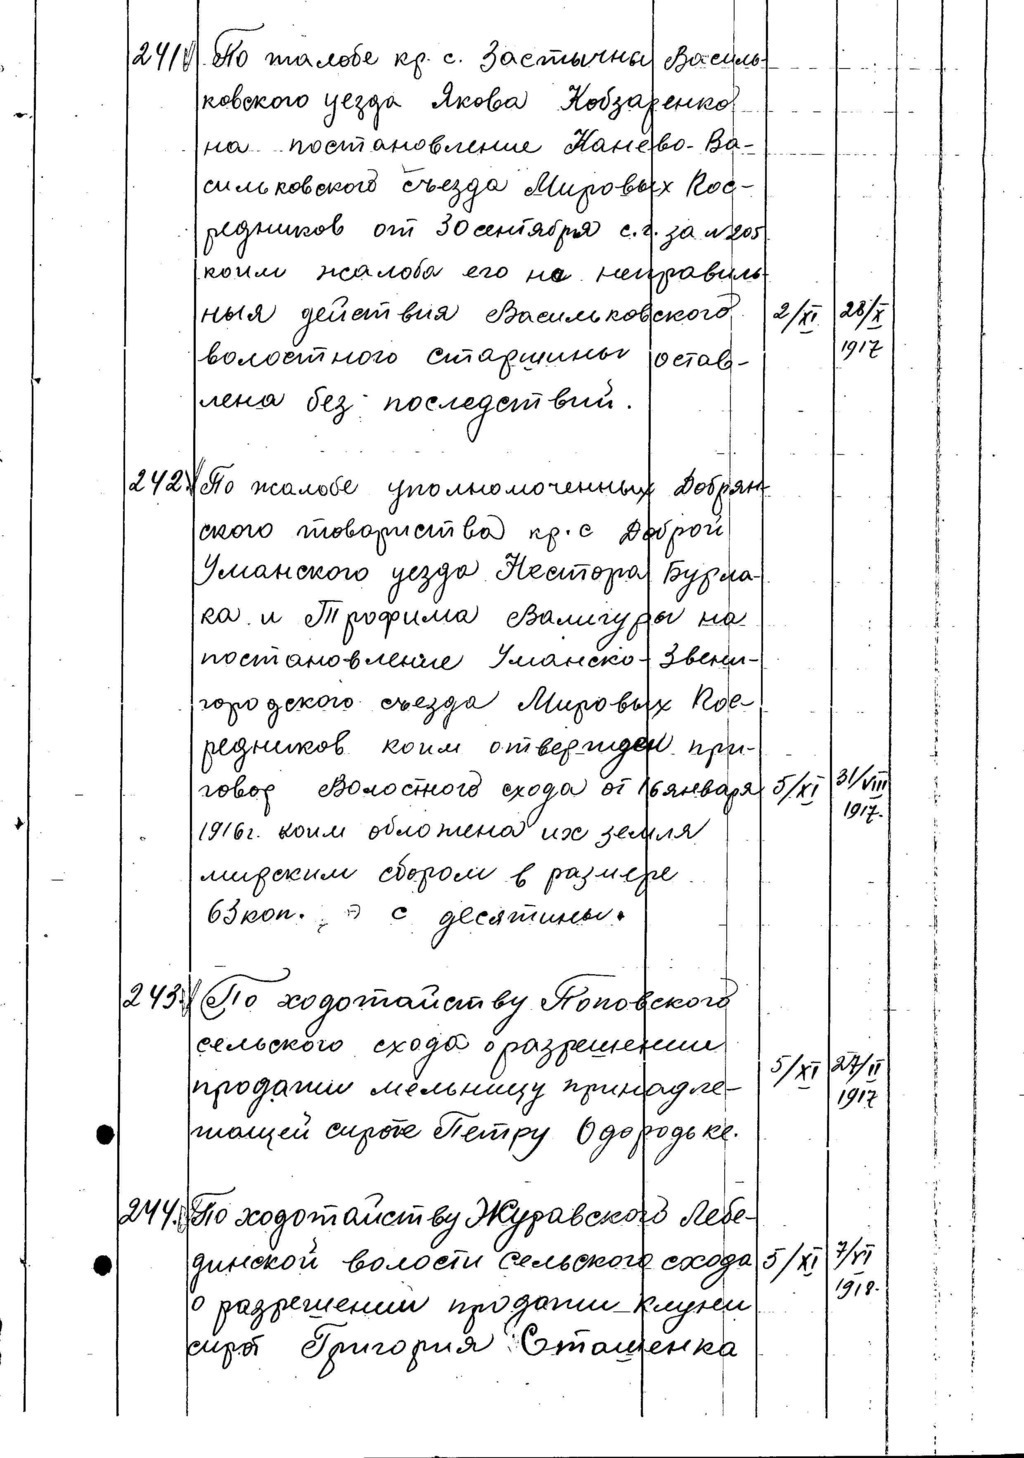 241. По жалобе кр. с. Застычны Василь-
ковского уезда Якова Кобзаренко
на постановление Канево-Ва-
сильковского съезда Мировых Пос-
редников от 30 сентября с.г. за №205
коим жалоба его на неправиль-
ныя действия Васильковского 2/XI 28/X
волостного старшины остав- 1917
лена без последствий.
242. По жалобе уполномоченных Добрян-
ского товариства кр. с Доброй
Уманского уезда Нестора Бурла-
ка и Трофима Валигуры на
постановление Уманско-Звени-
городского съезда Мировых Пос-
редников коим отвержден при-
говор Волостного схода от 16 января 5/XI 31/VIII
1916г. коим обложена их земля 1917.
мирским сбором в размере
63 коп. с десятины.
243. По ходотайству Поповского
сельского схода о разрешении
продажи мельницу принадле- 5/XI 27/II 1917
жащей сироте Петру Одородьке.
244. По ходотайству Журавского Лебе-
динской волости сельского схода 5/XI 7/VI
о разрешении продажи клуни 1918.
сирот Григория Сташенка